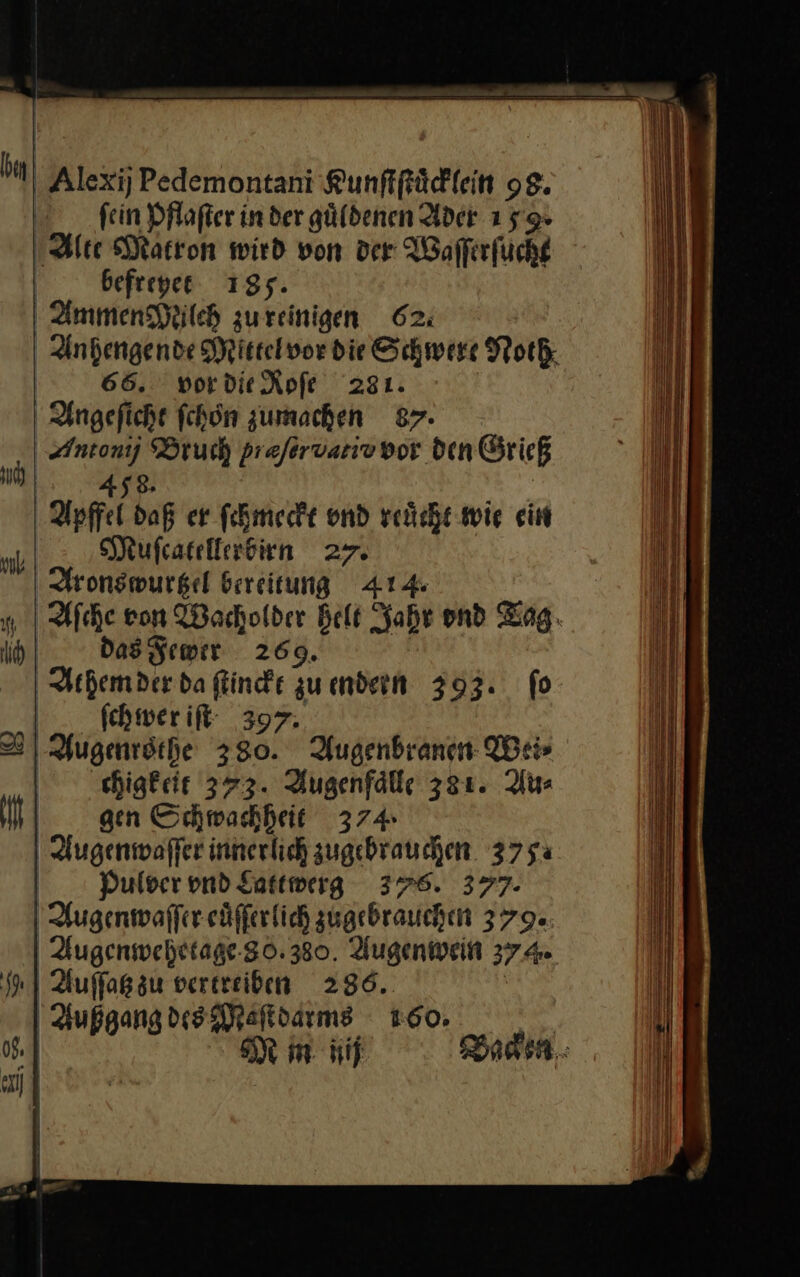 Alexij Pedemontani Kunſtſtuͤcklein 98.
ſein Pflaſter in der guͤldenen Ader 159.
Alte Matron wird von der Waſſerſucht
befreyet 185.
AmmenMilch zu reinigen 62.
Anhengende Mittel vor die Schwere Noth
66. vor die Roſe 281.
Angeſicht ſchoͤn zumachen 87.
Antonij Bruch præſervativ vor den Grieß
458.
Apffel daß er ſchmeckt vnd reuͤcht wie ein
Muſcatellerbirn 27.
Aronswurtzel bereitung 414.
Aſche von Wacholder helt Jahr vnd Tag
das Fewer 269.
Athem der da ſtinckt zu endern 393. ſo
ſchwer iſt 397.
Augenroͤthe 380. Augenbranen Wei⸗
chigkeit 373. Augenfaͤlle 381. Au⸗
gen Schwachheit 374.
Augenwaſſer innerlich zugebrauchen 375.
Pulver vnd Lattwerg 376. 377.
Augenwaſſer euͤſſerlich zugebrauchen 379.
Augenwehetage 80. 380. Augenwein 374.
Auſſatz zu vertreiben 286.
Außgang des Maſtdarms 160.
M m iij Backen